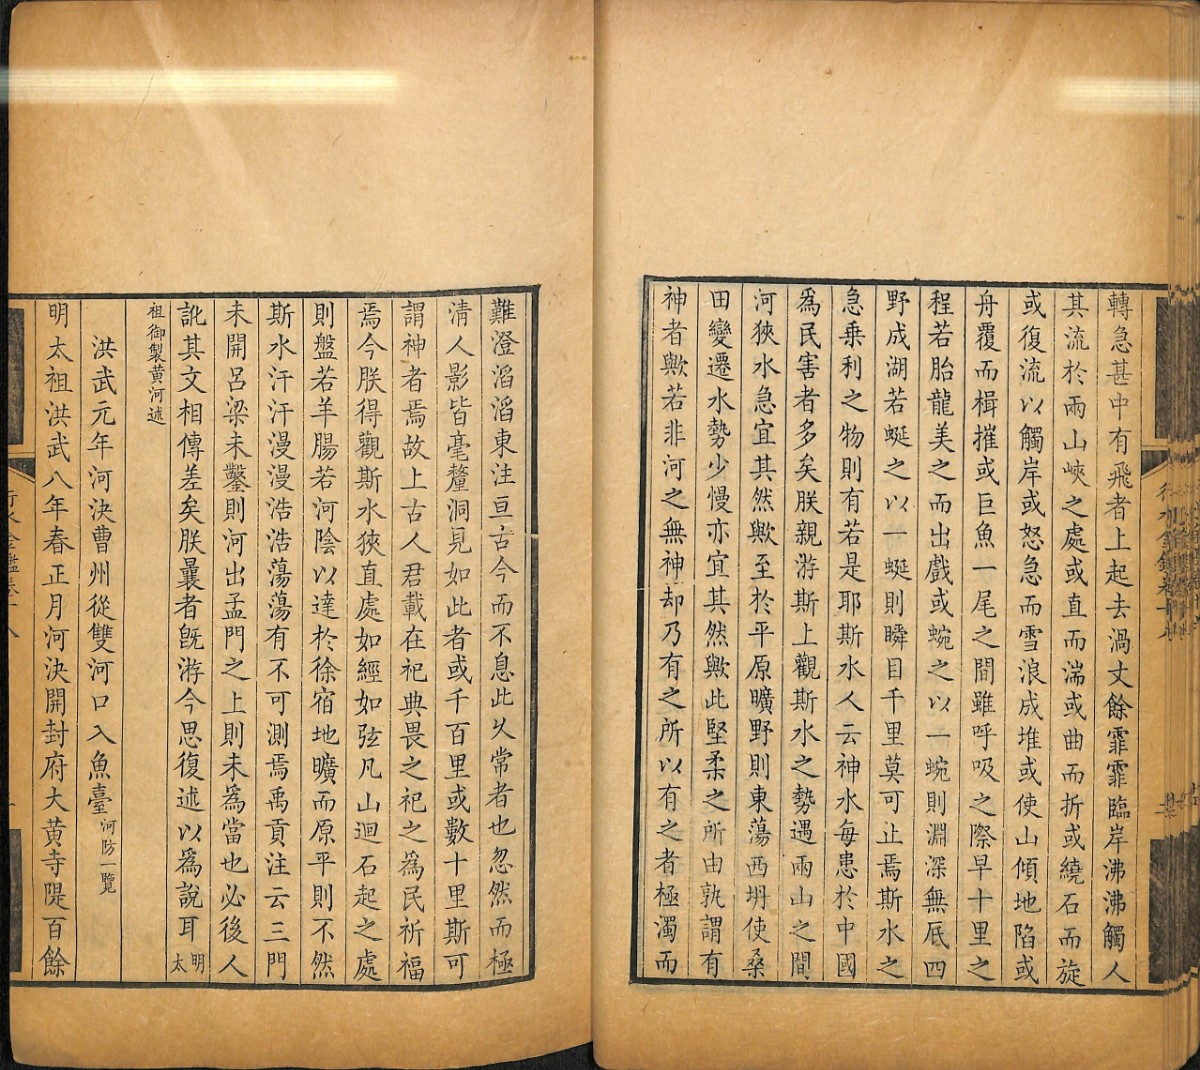 轉急甚中有飛者上起去渦丈餘霏霏臨岸沸沸觸人
其流於兩山峽之處或直而湍或曲而折或繞石而旋
或復流以觸岸或怒急而雪浪成堆或使山傾地陷或
舟覆而楫摧或巨魚一尾之間雖呼吸之際早十里之
程若胎龍美之而出戲或蜿之以一蜿則淵深無厎四
野成湖若蜒之以一蜒則瞬目千里莫可止焉斯水之
急乗利之物則有若是耶斯水人云神水每患於中國
爲民害者多矣朕親游斯上觀斯水之勢遇兩山之間
河狹水急宜其然歟至於平原曠野則東蕩西坍使桑
田變遷水勢少慢亦宜其然歟此堅柔之所由孰謂有
神者歟若非河之無神却乃有之所以有之者極濁而
難澄滔滔東注亘古今而不息此乆常者也忽然而極
清人影皆毫釐洞見如此者或千百里或數十里斯可
謂神者焉故上古人君載在祀典畏之祀之爲民祈福
焉今朕得觀斯水狹直處如經如弦凡山迴石起之處
則盤若羊腸若河陰以達於徐宿地曠而原平則不然
斯水汗汗漫漫浩浩蕩蕩有不可測焉禹貢注云三門
未開吕梁未鑿則河出孟門之上則未爲當也必後人
訛其文相傳差矣朕曩者旣游今思復述以爲說耳明太
祖御製黄河述
洪武元年河決曹州從雙河口入魚臺河防一覽
明太祖洪武八年春正月河決開封府大黄寺隄百餘
行水金鑑卷十八